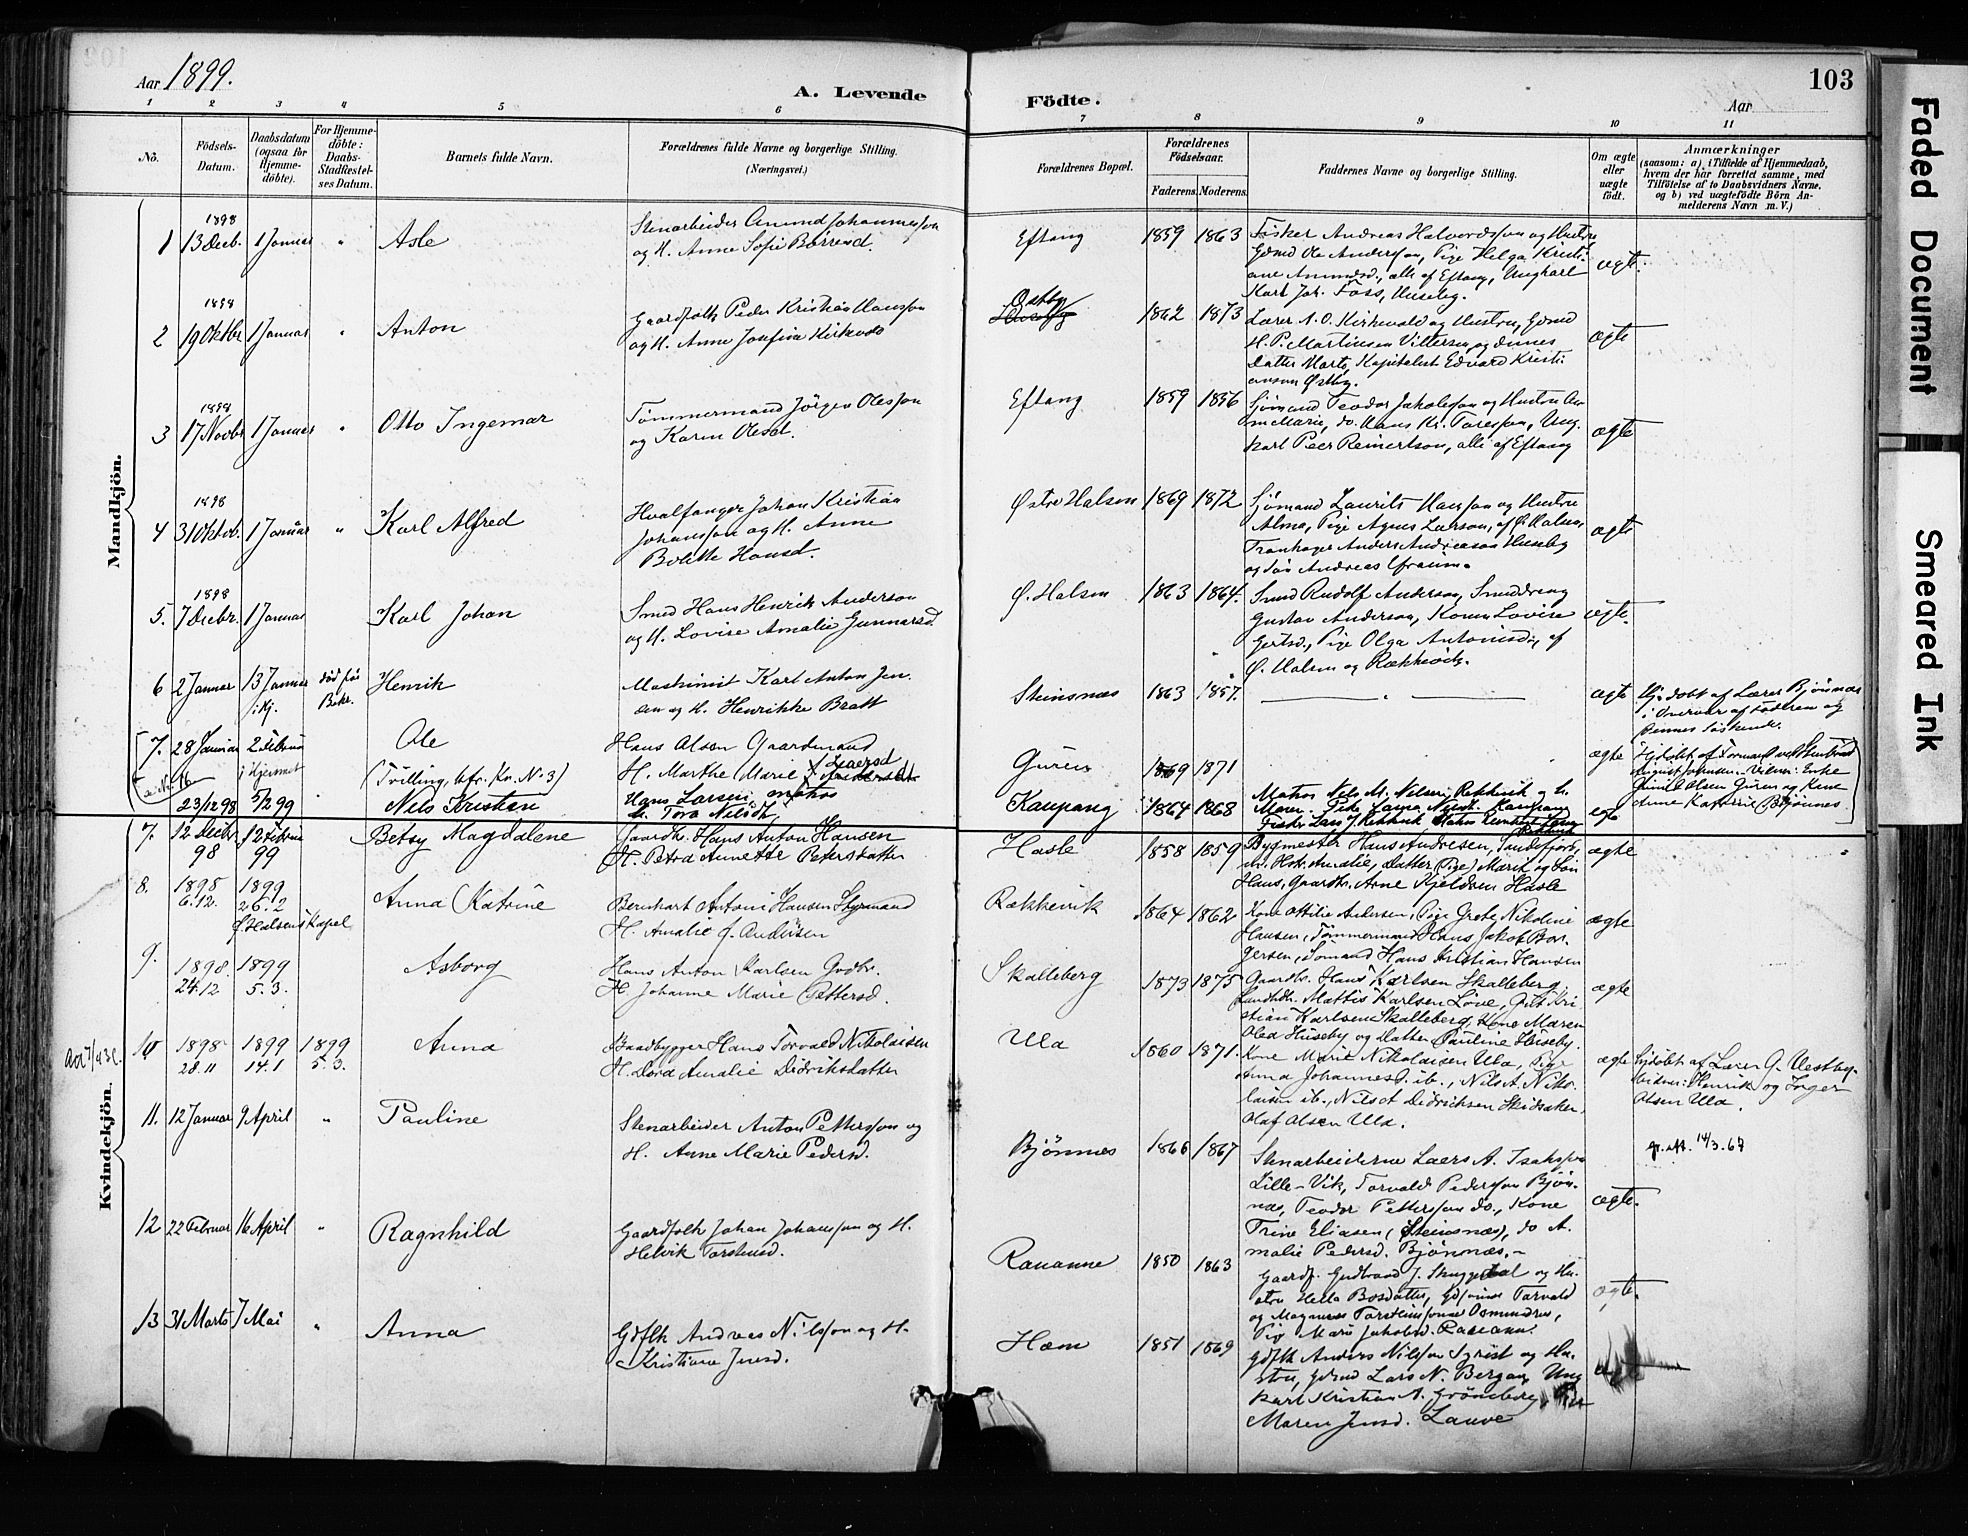 Aar 1899.
A. Levende
Födte.
Aar
103
1 2 3 4 5 6 7 8 9 10 11
Nô.
Födsels-
Datum.
Daabsdatum
(ogsaa for
Hjemme-
döbte).
For Hjemme-
döbte:
Daabs-
Stadfæstel-
ses Datum.
Barnets fulde Navn.
Forældrenes fulde Navne og borgerlige Stilling.
(Næringsvei.)
Forældrenes Bopæl.
Forældrenes
Födselsaar.
Faderens. Moderens.
Faddernes Navne og borgerlige Stilling.
Om ægte
eller
uægte
födt.
Anmærkninger
(saasom: a) i Tilfælde af Hjemmedaab,
hvem der har forrettet samme, med
Tilföielse af to Daabsvidners Navne,
og b) ved uægtefödte Börn An-
melderens Navn m. V.)
Mandkjön.
1898
1 13 Decb. 1 Januar " Asle
Stenarbeider Amund Johannesson
og H. Anne Sofie Börresd.
Eftang 1859 1863
Fisker Andreas Halvordsson og Hustru
Gdmd Ole Anderson, Pige Helga Kristi-
ane Amundsd., alle af Eftang, Ungkarl
Karl Joh. Foss, Huseby.
ægte.
1898
2 19 Oktbr 1 Januar " Anton
Gaardfolk Peder Kristian Hansson
og H. Anne Josefine Kirkevold
Østby 1862 1873
Lærer N. O. Kirkevold og Hustru, Gdmd
H. P. Martinsen Vittersen og dennes
Datter Marte, Kapitalist Edvard Kristi-
ansen Østby.
ægte
1898
3 17 Novbr 1 Januar " Otto Ingemar
Tømmermand Jörgen Olesson
og Karen Olesd.
Eftang 1859 1856
Sjømand Teodor Jakobsson og Hustru An-
ne Marie, do. Hans Kr. Toresson, Ung-
karl Peer Reinertson, alle af Eftang
ægte
1898
4 31 Oktob. 1 Januar " Karl Alfred
Hvalfanger Johan Kristian
Johansson og H. Anne
Bolette Hansd.
Østre Halsen 1869 1872
Sjømand Laurits Hansson og Hustru
Alma, Pige Agnes Larson, af Ø. Halsen,
Trankoger Anders Andreassen Huseby
og Søn Andreas Efraim.
ægte
1898
5. 7 Decbr. 1 Januar Karl Johan
Smed Hans Henrik Anderson
og H. Lovise Amalie Gunnarsd.
Ø. Halsen 1863 1864.
Smed Rudolf Anderson, Smeddreng
Gustav Anderson, Konen Lovise
Gertsd., Pige Olga Antonisd., af
Ø. Halsen og Rækkevik.
ægte.
6 2 Januar 13 Januar
i Hj.
død før
Bekr.
Henrik
Maskinist Karl Anton Jen-
sen og H. Henrikke Bratt
Steinsnæs 1863 1857.
ægte
Hj. døbt af Lærer Bjönnæs
i Overvær af Faderen og
Pinnes Søskende.
7. 28 Januar 2 Februar
i Hjemmet
Ole
(Tvilling, cfr. Kv. No. 3)
Hans Olsen Gaardmand
H. Marthe Marie Laersd
Guren 1869 1871
ægte
23/12 98 5/2 99 Nils Kristian
Hans Larsen, matros
H. Tora Nilsdtr.
Kaupang 1864 1868
Matros Nils M. Nilsen, Rekkevik og h.
ægte
Kvindekjön.
7. 12 Decbr 12 Februar
98 99
Betsy Magdalene
Gaardbr. Hans Anton Hansen
H. Petra Annette Petersdatter
Hasle 1858 1859
Bygmester Hans Andresen, Sandefjord,
m. Hstr. Amalie, Datter (Pige) Marit og Søn
Hans, Gaardbr. Arne Kjeldsen Hasle
ægte
8. 1898 1899
6.12. 26.2
Ø. Halsens Kapel
Anna Katrine
Bernhart Antoni Hansen Styrmand
H. Amalie J. Andersen
Rækkevik 1864 1862
Kone Ottilie Andersen, Pige Grete Nikoline
Hansen, Tømmermand Hans Jakob Bor-
gersen, Sømand Hans Kristian Hansen
ægte
9. 1898. 1899
24.12 5.3.
Asborg
Hans Anton Karlsen Grdbr.
H. Johanne Marie Pettersd.
Skalleberg 1873 1875
Gaardbr. Hans Karlsen Skalleberg,
Landhdl. Mattis Karlsen Löve, Gut Kri-
stian Karlsen Skalleberg, Kone Maren
Olea Huseby og Datter Pauline Huseby.
ægte
10 1898 1899 1899
28.11 14.1 5.3.
Anna
Baadbygger Hans Torvald Nikolaisen
H. Dora Amalie Didriksdatter
Ula 1860 1871.
Kone Marie Nikolaisen Ula, Pige
Anna Johannesd. ib., Nils A. Niko-
laisen ib., Nils A Didrichsen Skisaker,
Olaf Olsen Ula.
ægte
Hjdøbt af Lærer G. Vestby.
Vidner: Henrik og Inger
Olsen Ula.
11. 12 Januar 9 April " Pauline
Stenarbeider Anton Pettersson og
H. Anne Marie Pedersd.
Bjönnes 1866 1867
Stenarbeiderne Laers A. Isaksson
Lille-Vik, Torvald Pedersson Bjøn-
næs, Teodor Pettersson do., Kone
Trine Eliasen (Steinsnæs), do A-
malie Pedersd. Bjønnæs.
ægte.
14/3.67
12 22 Februar 16 April " Ragnhild
Gaardfolk Johan Johansson og H.
Helvik Torstensd.
Rauanne 1850 1863
Gaardf. Gudbrand J. Skuggedal og Hu-
stru Hella Bosdatter, Gdsønner Torvald
og Magnus Torsteinssønner Osmundrø,
Pige Marie Jakobsd. Rauanne.
ægte.
13 31 Marts 7 Mai " Anna
Gdflk Andreas Nilsson og H.
Kristiane Jensd.
Hæm 1851 1869
Gdflk Anders Nilsson Syrist og Hu-
stru, Gdmd Lars N. Bergan, Ung-
karl Kristian N. Grönneberg, Pige
Maren Jensd. Lauve
ægte
Faded Document
Smeared Ink